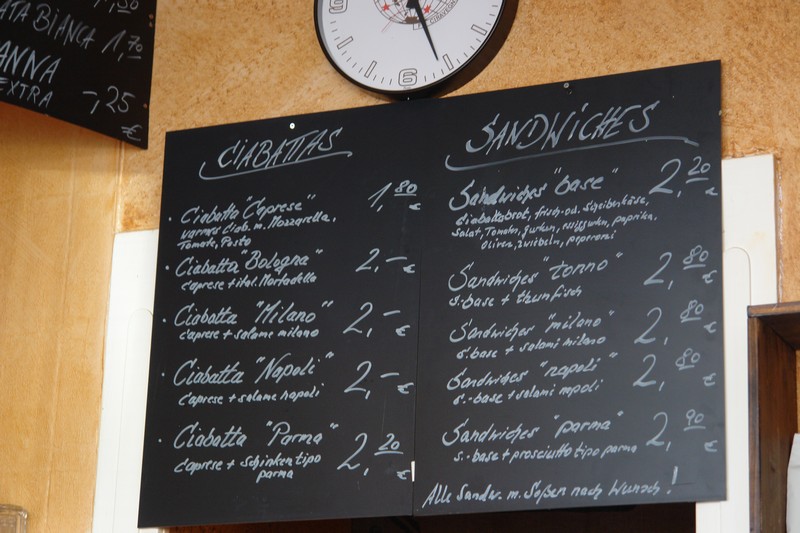 1,50
ATA BIANCA 1,70
ANNA
EXTRA -,25
€
6
CIABATTAS
Ciabatta "Caprese" 1,80 €
warmes Ciab. m. Mozzarella,
Tomate, Pesto
Ciabatta "Bologna" 2,– €
caprese + ital. Mortadella
Ciabatta "Milano" 2,– €
caprese + salame milano
Ciabatta "Napoli" 2,– €
caprese + salame napoli
Ciabatta "Parma" 2,20 €
caprese + schinken tipo
parma
SANDWICHES
Sandwiches "base" 2,20 €
Ciabattabrot, frisch-od. Scheibenkäse,
Salat, Tomaten, gurken, essiggurken, paprika,
Oliven, zwibeln, peperoni
Sandwiches "tonno" 2,80 €
s.-base + thunfisch
Sandwiches "milano" 2,80 €
s.-base + salami milano
Sandwiches "napoli" 2,80 €
s.-base + salami napoli
Sandwiches "parma" 2,90 €
s.-base + prosciutto tipo parma
Alle Sandw. m. Soßen nach Wunsch!